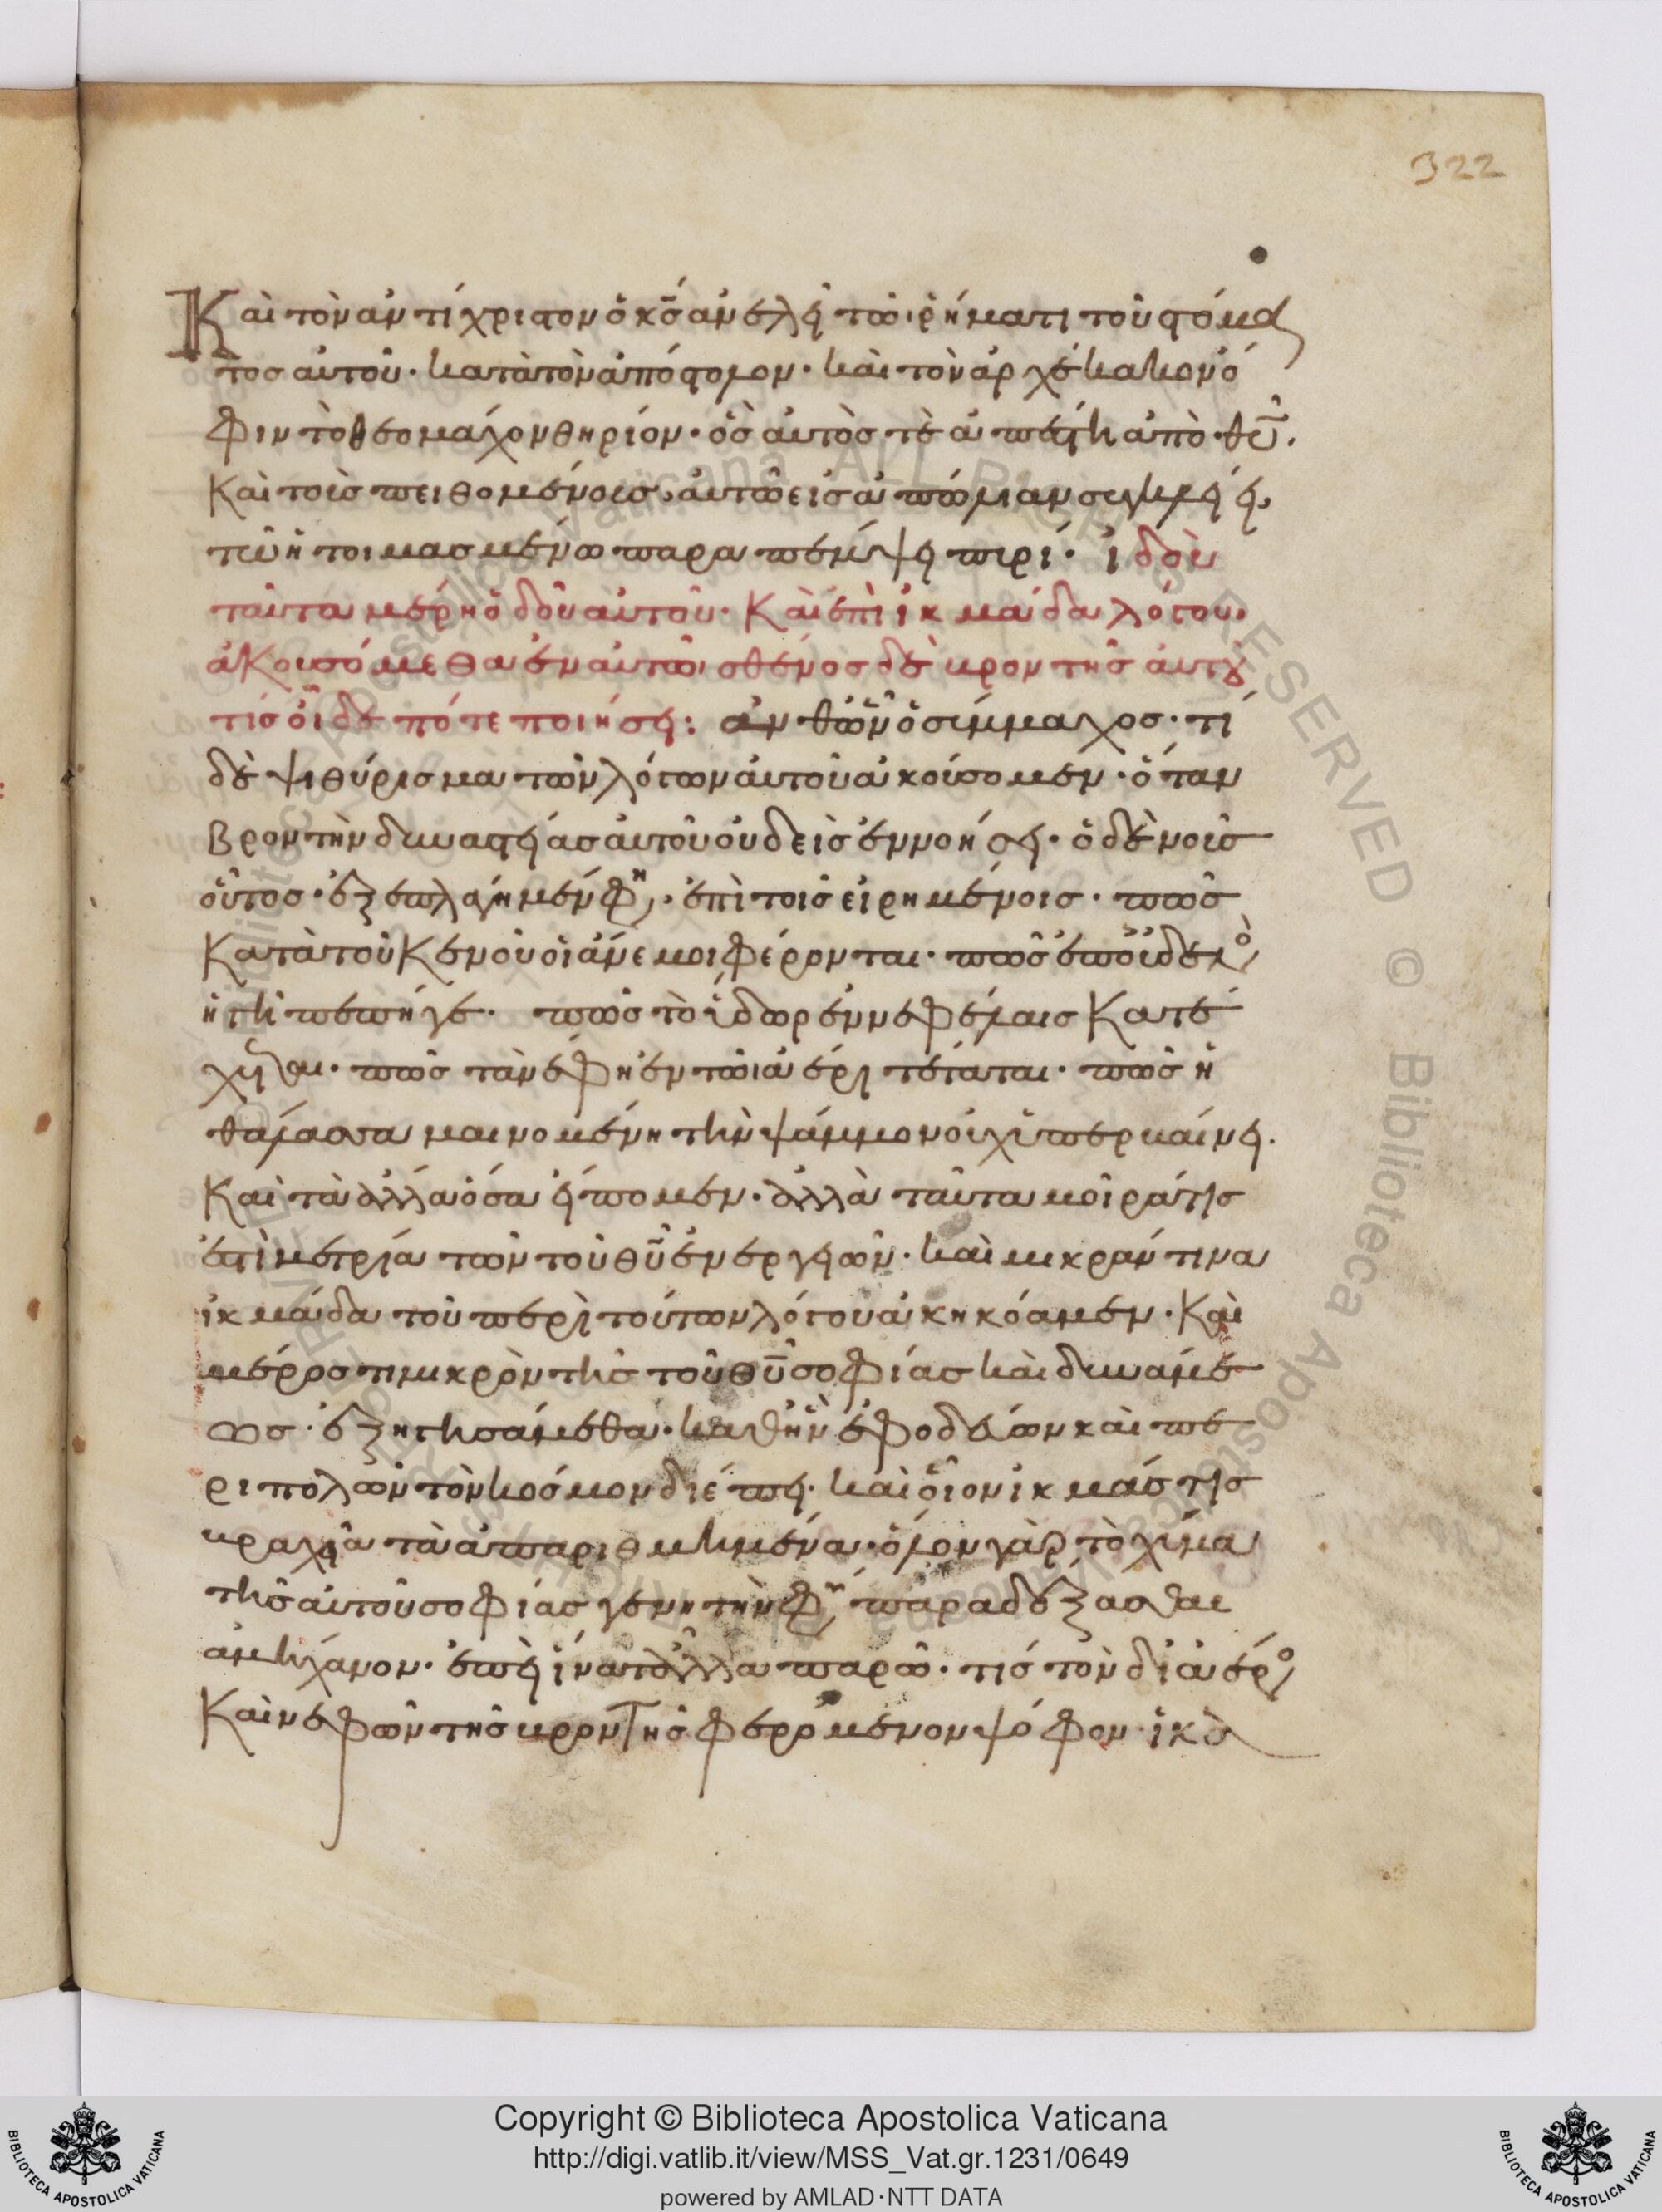 322
Καὶ τὸν ἀντίχριστον ὁ κ̅ς̅ ἀνελεῖ τῶι ῥήματι τοῦ στόμα
τος αὐτοῦ· κατὰ τὸν ἀπόστολον· καὶ τὸν ἀρχέκακον ὄ
φιν τὸ θεομάχον θηρίον· ὃς αὐτὸς τε ἀπέστη ἀπὸ θ̅υ̅.
Καὶ τοῖς πειθομένοις αὐτῶ εἰς ἀπώλιαν
τῶ ἡτοιμασμένω παραπέμψει πυρί· ἰδοὺ
ταῦτα μέρη ὁδοῦ αὐτοῦ· Καὶ ἐπὶ ἰκμάδα λόγου
ἀκουσόμεθα ἐν αὐτῶι σθένος δὲ βροντῆς αὐτοῦ
τίς οἶδε πότε ποιήσει: ἀνθ' ὧν ὁ σύμμαχος· τί
δὲ ψιθύρισμα τῶν λόγων αὐτοῦ ἀκούσομεν· ὅταν
βροντὴν δυναστείας αὐτοῦ οὐδεὶς ἐννοήσει· ὁ δὲ νοῦς
οὗτος· ἐπὶ τοῖς εἰρημένοις· πῶς
Κατὰ τοῦ κενοῦ οἱ ἄνεμοι φέρονται· πῶς ἐπ' οὐδενὸς
ἡ γῆ πέπηγε· πῶς τὸ ὕδωρ ἐν νεφέλαις κατέ
χεται· πῶς τὰ νέφη ἐν τῶι ἀέρι τέταται· πῶς ἡ
θάλασσα μαινομένη τὴν ψάμμον οὐχ ὑπερβαίνει.
Καὶ τὰ ἄλλα ὅσα εἴπομεν· ἀλλὰ ταῦτα μοῖρά τις
ἐστὶ μετρία τῶν τοῦ θ̅υ̅ ἐνεργειῶν· καὶ μικράν τινα
ἰκμάδα τοῦ περὶ τούτων λόγου ἀκηκόαμεν· Καὶ
μέρος τι μικρὸν τῆς τοῦ θ̅υ̅ σοφίας καὶ δυνάμε
ως· ἐξητησάμεθα· καθ' ἣν ἐφοδεύων καὶ πε
ριπολῶν τὸν κόσμον διέπει· καὶ οἷον ἰκμάς τις
βραχεῖα τὰ ἀπαριθμημένα· ὅλον γὰρ τὸ χύμα
τῆς αὐτοῦ σοφίας γεννητὴν φύσιν παραδέξασθαι
ἀμήχανον· ἐπεὶ ἵνα τὰ ἄλλα παρῶ· τίς τὸν δι' ἀέρος
Καὶ νεφῶν τῆς βροντῆς φερόμενον ψόφον ἱκα
Copyright © Biblioteca Apostolica Vaticana
http://digi.vatlib.it/view/MSS_Vat.gr.1231/0649
powered by AMLAD·NTT DATA
BIBLIOTECA APOSTOLICA VATICANA
BIBLIOTECA APOSTOLICA VATICANA